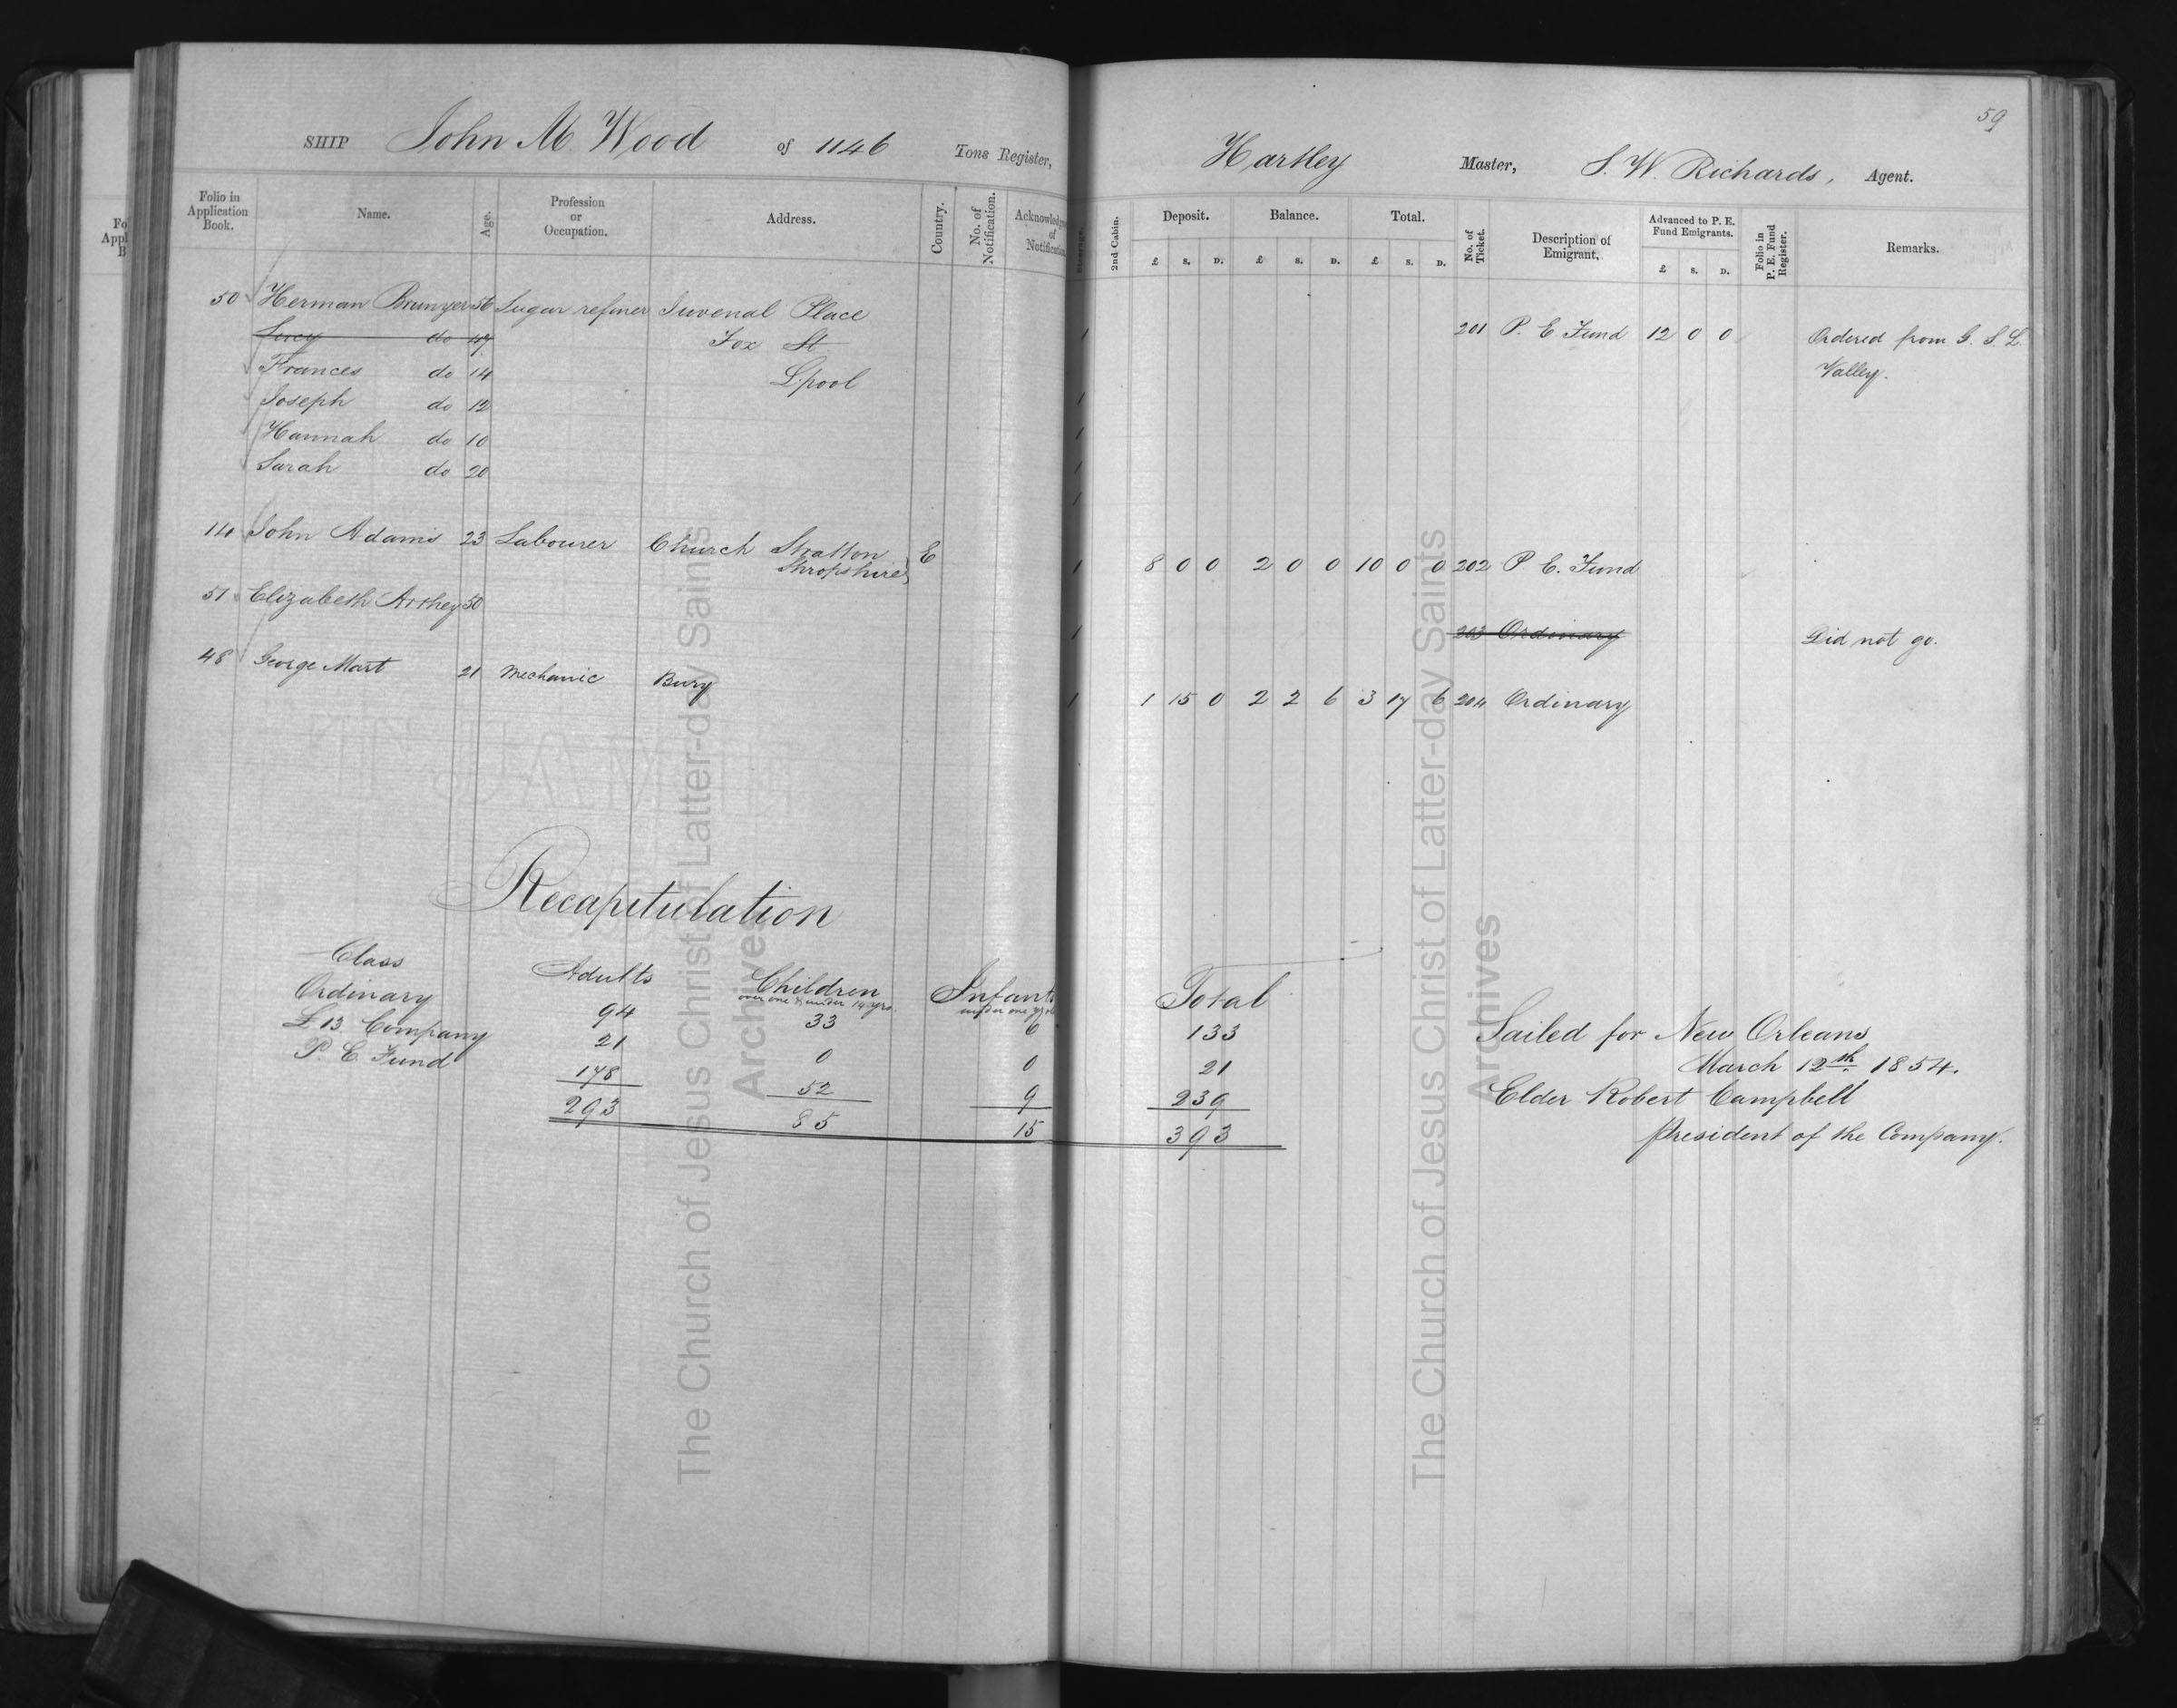 59
SHIP John M Wood of 1146 Tons Register, Hartley Master, S. W. Richards, Agent.
Folio in Application Book. Name. Age. Profession or Occupation. Address. Country. No. of Notification. Acknowledgment of Notification 2nd Cabin. Deposit. Balance. Total. No. of Ticket. Description of Emigrant. Advanced to P. E. Fund Emigrants. Folio in P. E. Fund Register. Remarks.
£ S. D. £ S. D. £ S. D. £ S. D.
50 Herman Brunyer 56 Sugar refiner Juvenal Place 1 201 P. E Fund 12 0 0 Ordered from G. S. L.
do 47 Fox St Valley.
Frances do 14 L.pool 1
Joseph do 12 1
Hannah do 10 1
Sarah do 20 1
114 John Adams 23 Labourer Church Stratton E 1 8 0 0 2 0 0 10 0 0 202 P. E. Fund
Shropshire
51 Elizabeth Arthey 50 1 203 Ordinary Did not go.
48 George Mart 21 Mechanic Bury 1 1 15 0 2 2 6 3 17 6 204 Ordinary
Recapitulation
Class Adults Children Infants Total
over one & under 14 yrs. under one
Ordinary 94 33 6 133
£13 Company 21 0 0 21
P. E. Fund 178 52 9 239
293 85 15 393
Sailed for New Orleans
March 12th 1854.
Elder Robert Campbell
President of the Company.
The Church of Jesus Christ of Latter-day Saints
Archives
The Church of Jesus Christ of Latter-day Saints
Archives